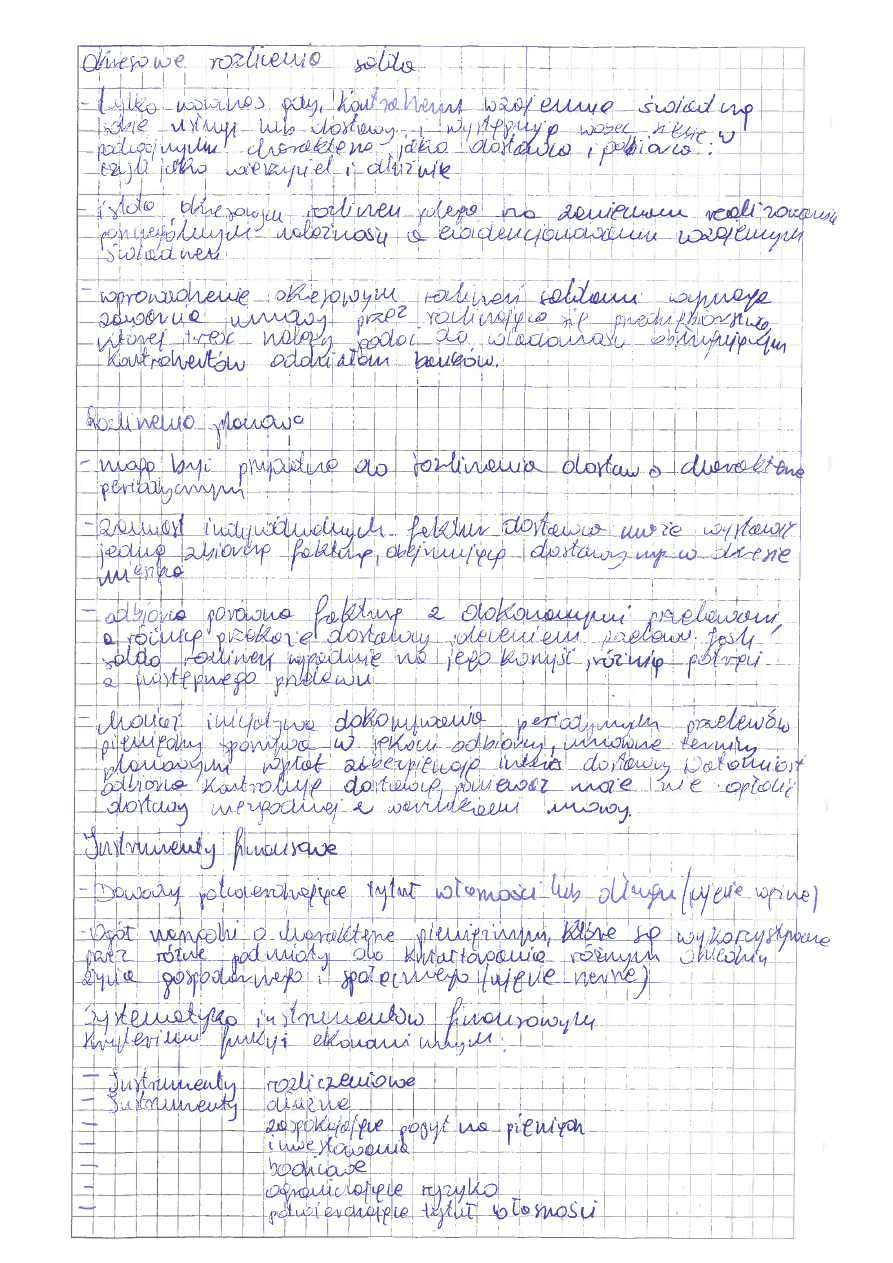 Okresowe rozliczenia saldo
- tylko wówczas gdy, kontrahenci wzajemnie świadczą
sobie usługi lub dostawy i występują wobec siebie w
podwójnym charakterze jako dostawca i odbiorca:
czyli jako wierzyciel i dłużnik
- istota okresowych rozliczeń polega na zaniechaniu realizowania
poszczególnych należności a ewidencjonowaniu wzajemnych
świadczeń
- wprowadzenie okresowych rozliczeń saldami wymaga
zawarcia umowy przez rozliczające się przedsiębiorstwa,
której treść należy podać do wiadomości obsługującym
kontrahentów oddziałom banków.
Rozliczenia planowe
- mogą być przydatne do rozliczania dostaw o charakterze
periodycznym
- zamiast indywidualnych faktur dostawca może wystawić
jedną zbiorczą fakturę, obejmującą dostawy np w okresie
miesiąca
- odbiorca porówna fakturę z dokonanymi przelewami,
a różnicę przekaże dostawcy poleceniem przelewu. Jeśli
saldo rozliczeń wypadnie na jego korzyść, różnicę potrąci
z następnego przelewu
- chociaż inicjatywa dokonywania periodycznych przelewów
pieniężnych spoczywa w rękach odbiorcy, umowne terminy
planowych wpłat zabezpieczają interes dostawcy Natomiast
odbiorca kontroluje dostawcę, ponieważ może nie opłacić
dostawy niezgodnej z warunkami umowy.
Instrumenty finansowe
- Dowody potwierdzające tytuł własności lub długu (ujęcie węższe)
- Ogół narzędzi o charakterze pieniężnym, które są wykorzystywane
przez różne podmioty do kształtowania różnych
życia gospodarczego i społecznego (ujęcie szersze)
Systematyka instrumentów finansowych
Kryterium funkcji ekonomicznych:
- Instrumenty rozliczeniowe
- Instrumenty dłużne
- zaspokajające popyt na pieniądz
- inwestowania
- bodźcowe
- ograniczające ryzyko
- potwierdzające tytuł własności